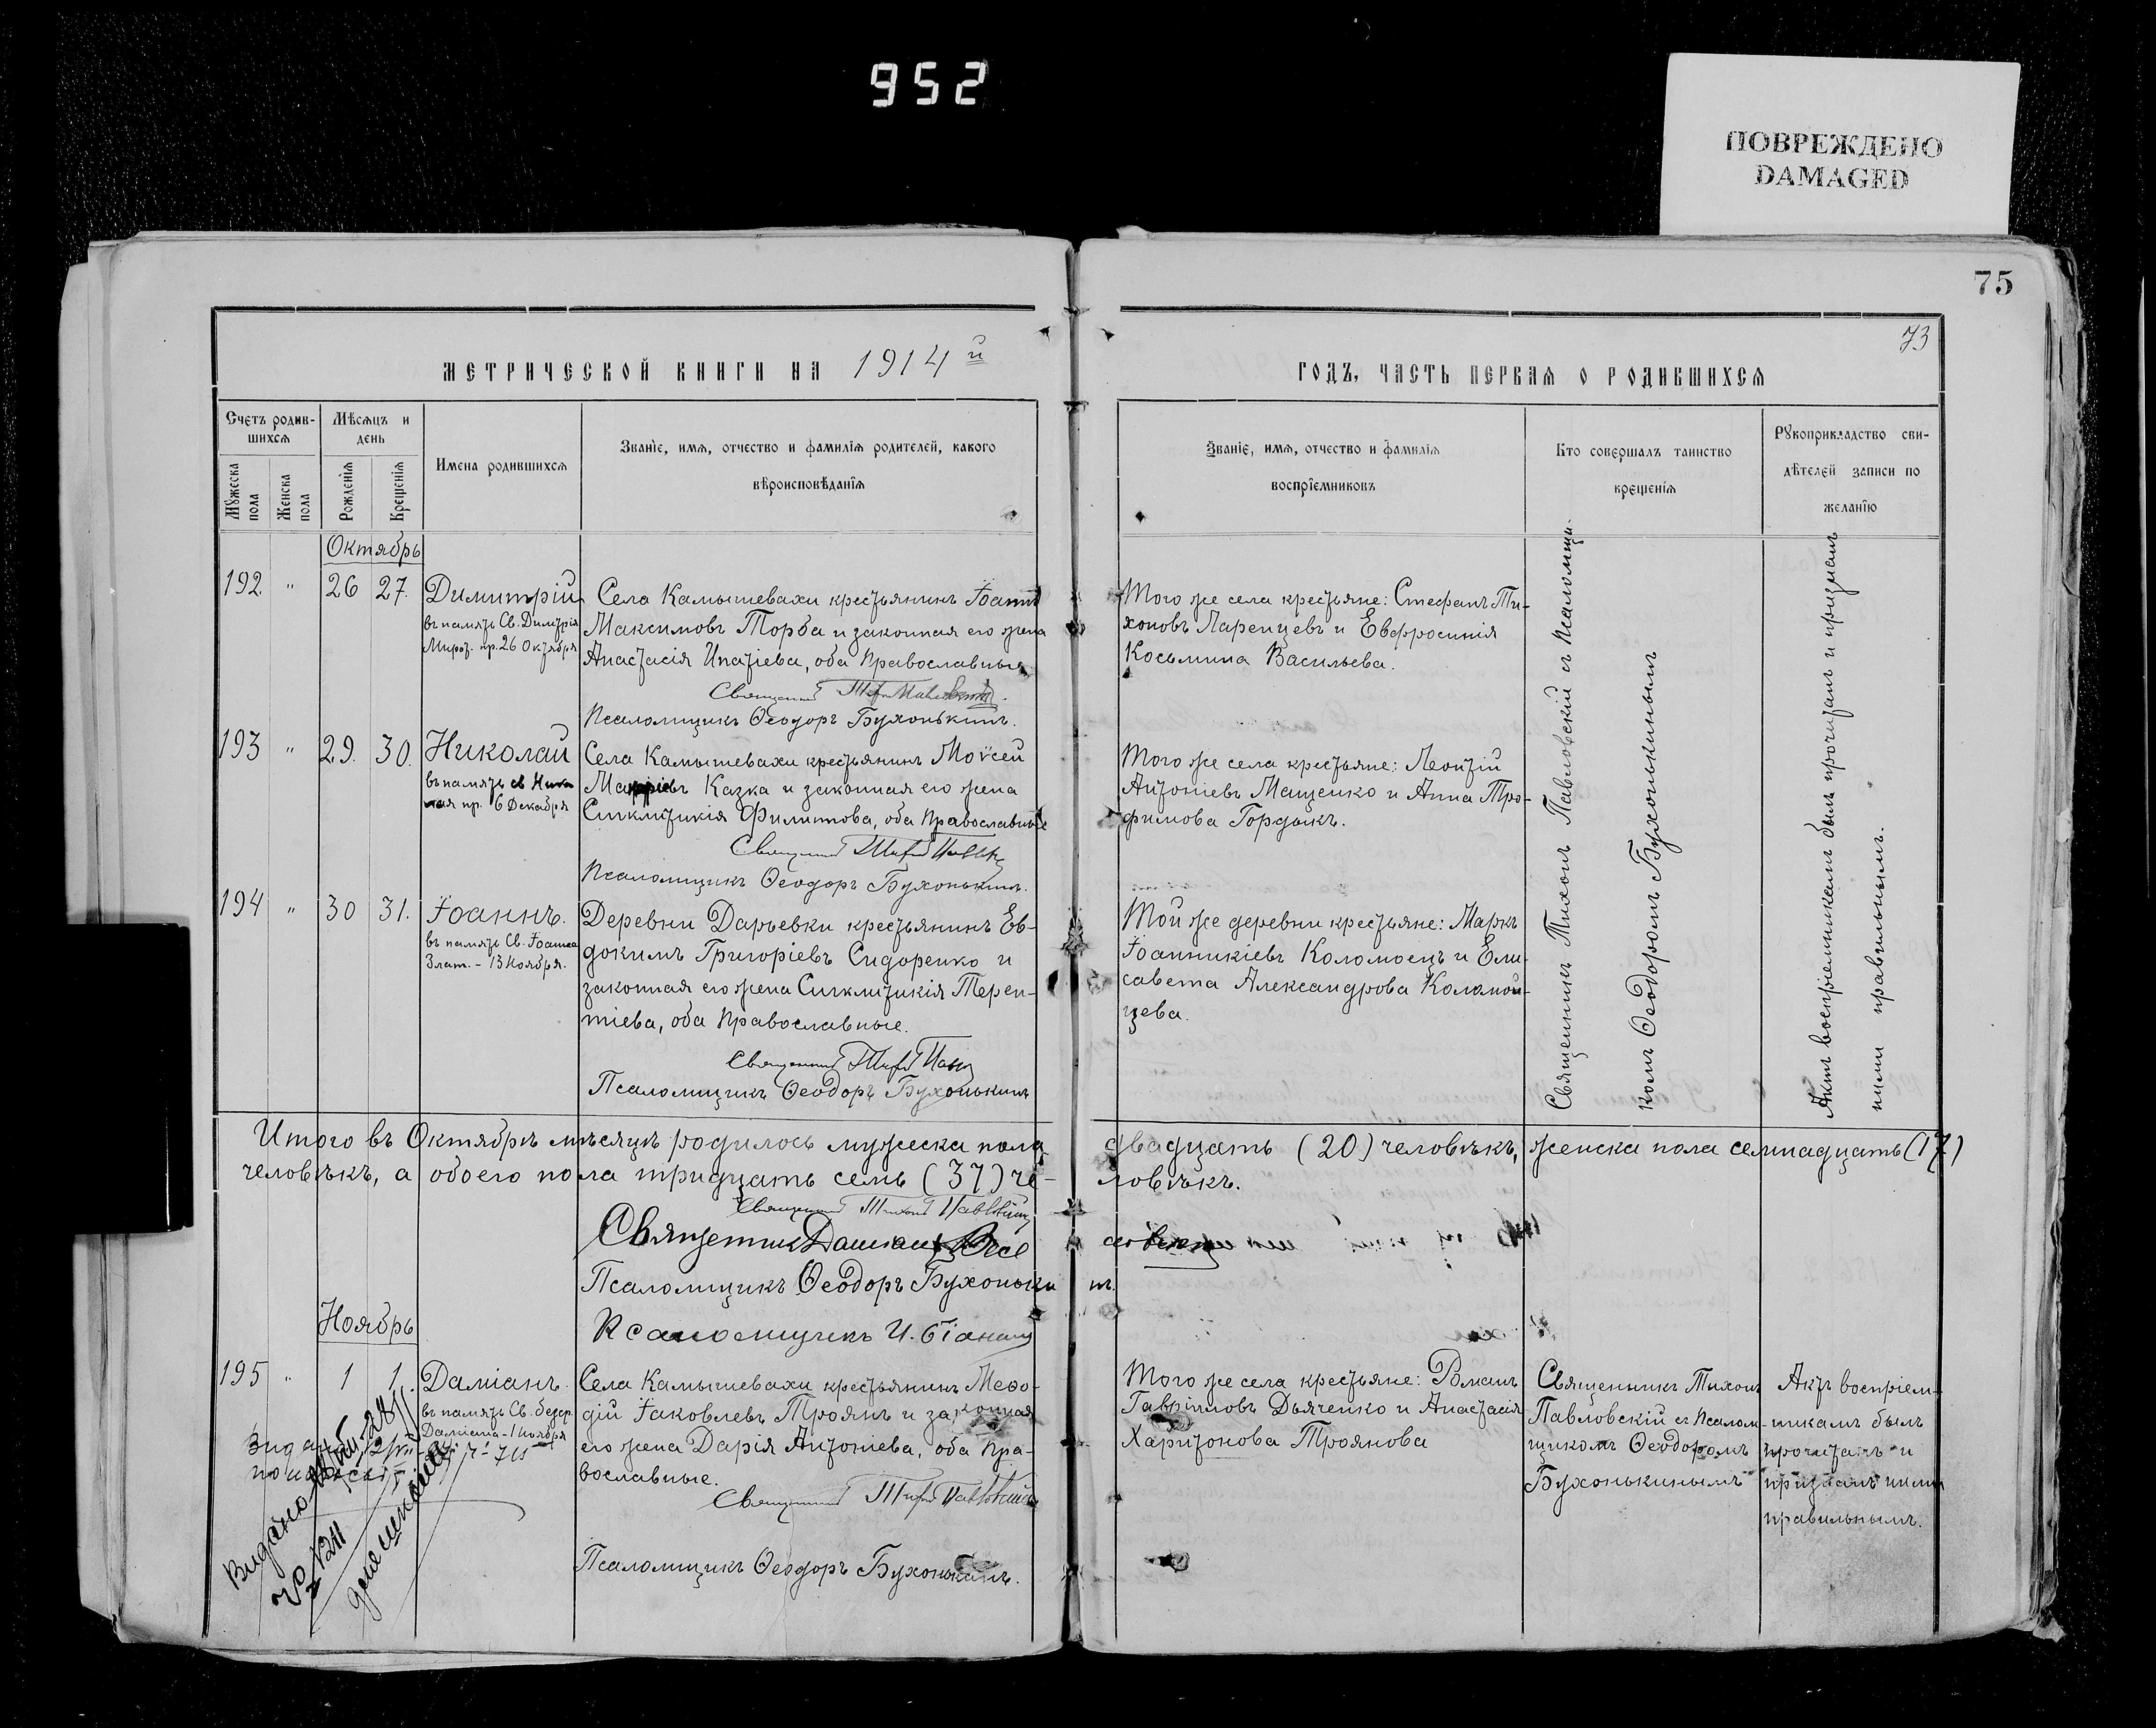 952
ПОВРЕЖДЕНО
DAMAGED
75
73
МЕТРИЧЕСКОЙ КНИГИ НА 1914 й
ГОДЪ, ЧАСТЬ ПЕРВАЯ О РОДИВШИХСЯ
Счетъ родив-
шихся
Мѣсяцъ и
день
Мужеска пола
Женска пола
Рожденія
Крещенія
Имена родившихся
Званіе, имя, отчество и фамилія родителей, какого
вѣроисповѣданія
Званіе, имя, отчество и фамилія
воспріемниковъ
Кто совершалъ таинство
крещенія
Рукоприкладство сви-
дѣтелей записи по
желанію
Октябрь
192 " 26 27. Димитрій
въ память Св. Димитрія
Мирот. пр. 26 Октября
Села Камышевахи крестьянинъ Іоаннъ
Максимовъ Торба и законная его жена
Анастасія Ипатіева, оба Православные
Священникъ Тихонъ Павловскій
Псаломщикъ Ѳеодоръ Бухонькинъ.
Того же села крестьяне: Стефанъ Ти-
хоновъ Ларенцевъ и Евфросинія
Косьмина Васильева.
193 " 29. 30. Николай
въ память св Нико
лая пр. 6 Декабря
Села Камышевахи крестьянинъ Моѵсей
Казка и законная его жена
Сигклитикія Филиппова, оба Православные
Священникъ
Псаломщикъ Ѳеодоръ Бухонькинъ.
Того же села крестьяне: Леонтій
Антоніевъ Мащенко и Анна Тро-
фимова Гордыкъ.
194 " 30 31. Іоаннъ.
въ память Св. Іоанна
Злат. - 13 Ноября.
Деревни Дарьевки крестьянинъ Ев-
докимъ Григоріевъ Сидоренко и
законная его жена Сигклитикія Терен-
тіева, оба Православные.
Священникъ
Псаломщикъ Ѳеодоръ Бухонькинъ
Той же деревни крестьяне: Маркъ
Іоанникіевъ Коломоецъ и Ели-
савета Александрова Коломой-
цева.
Священникъ Тихонъ Павловскій съ Псаломщи-
комъ Ѳеодоромъ Бухонькинымъ
Актъ воспріемникамъ былъ прочитанъ и признанъ
ними правильнымъ.
Итого въ Октябрѣ мѣсяцѣ родилось мужеска пола двадцать (20) человѣкъ, женска пола семнадцать (17)
человѣкъ, а обоего пола тридцать семь (37) че-ловѣкъ.
Священникъ Тихонъ Павловскій
Священникъ Даміанъ
Псаломщикъ Ѳеодоръ Бухонькинъ.
Псаломщикъ И.
Ноябрь
195 " 1 1. Даміанъ.
въ память Св. безср.
Даміана - 1 Ноября
Села Камышевахи крестьянинъ Меѳо-
дій Іаковлевъ Троянъ и законная
его жена Дарія Антоніева, оба Пра-
вославные.
Священникъ Тихонъ Павловскій
Псаломщикъ Ѳеодоръ Бухонькинъ.
Того же села крестьяне: Романъ
Гавріиловъ Дьяченко и Анастасія
Харитонова Троянова
Священникъ Тихонъ
Павловскій съ Псалом-
щикомъ Ѳеодоромъ
Бухонькинымъ
Актъ воспріем-
никамъ былъ
прочитанъ и
признанъ ними
правильнымъ.
Видано